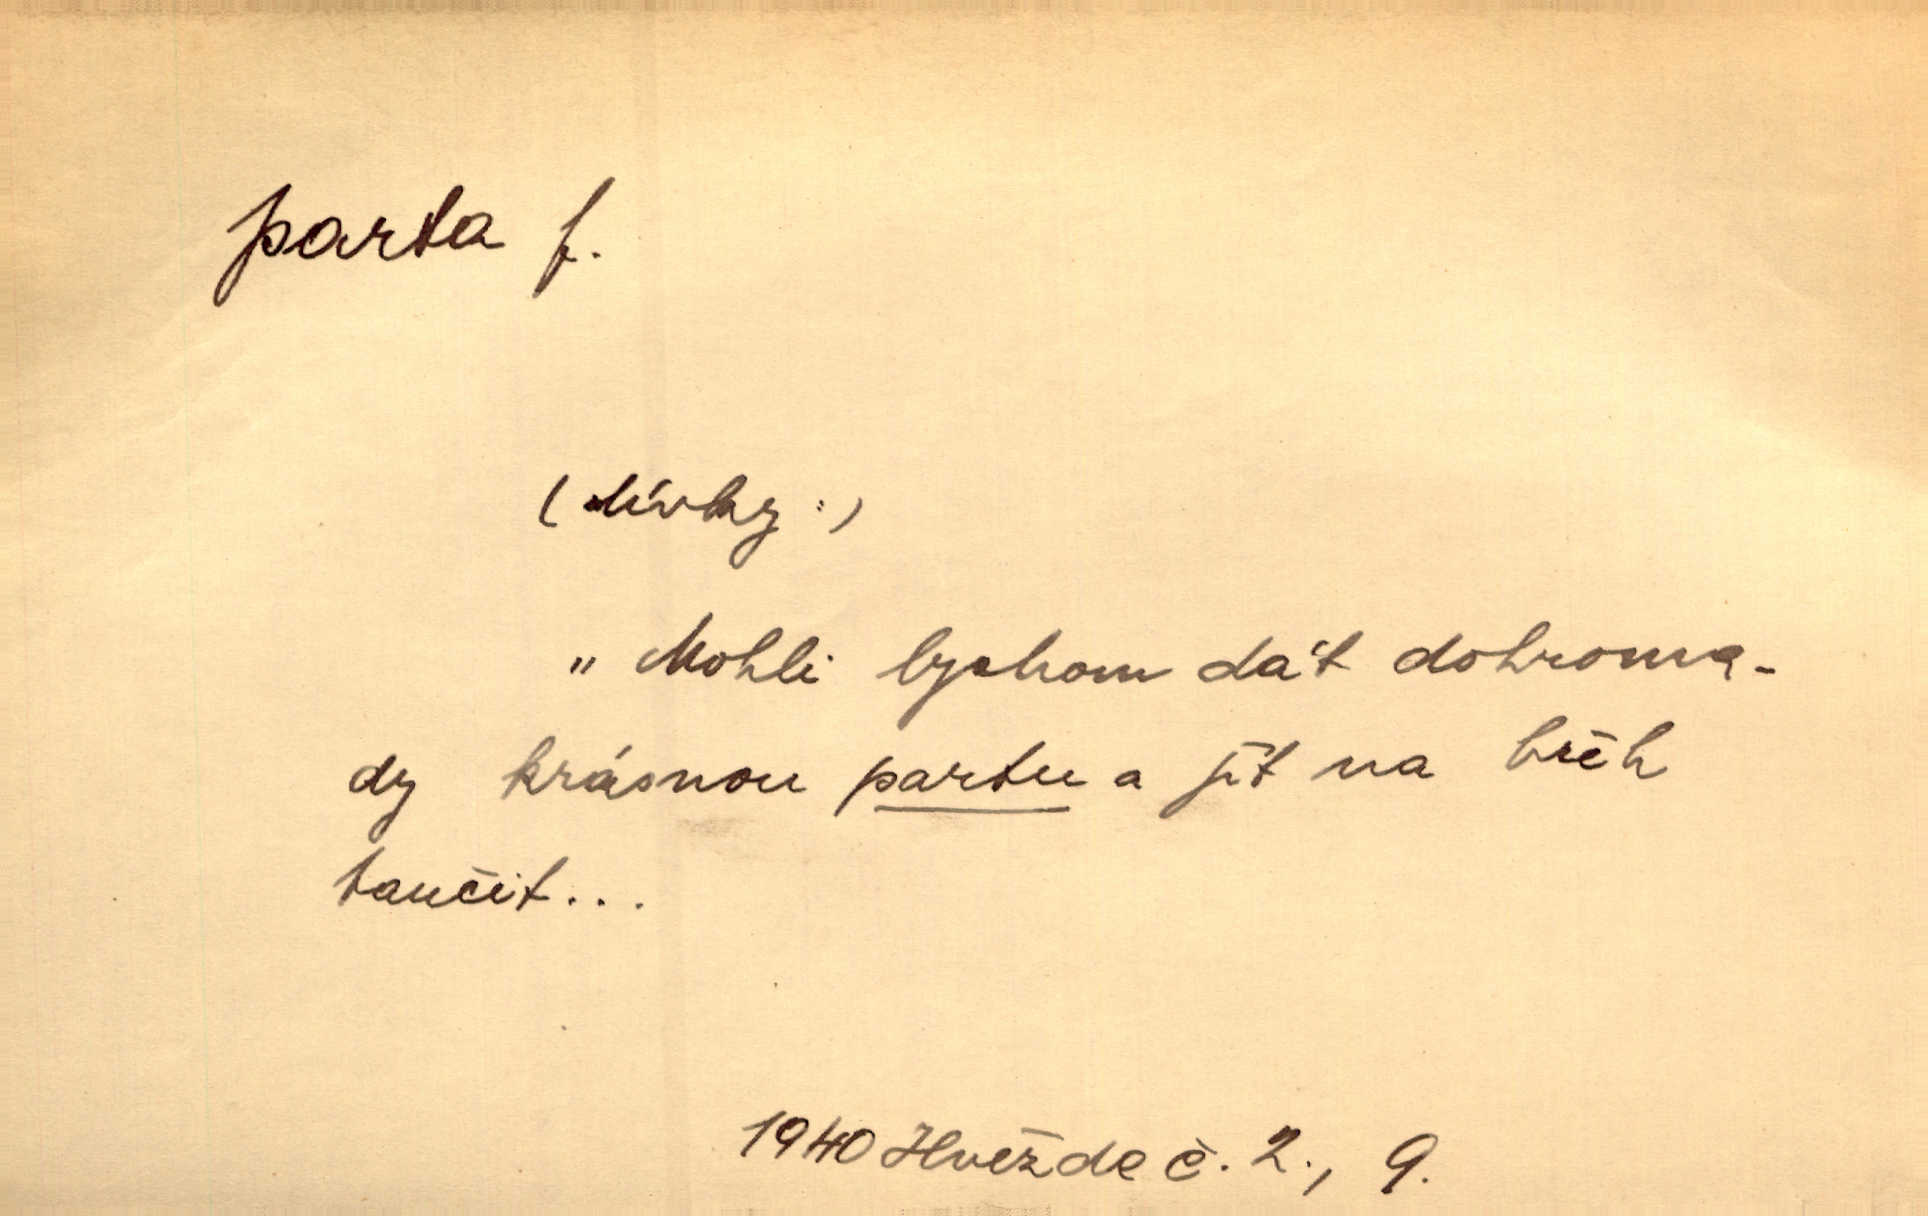 parta f.
(dívky:)
„Mohli bychom dát dohroma-
dy krásnou partu a jít na břeh
tančit...
1940 Hvězda č. 2., 9.